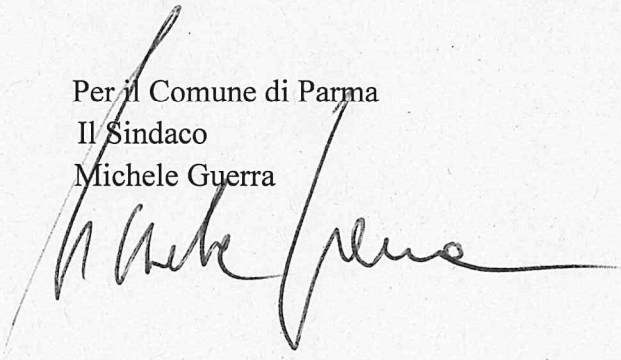 Per il Comune di Parma
Il Sindaco
Michele Guerra
Michele Guerra